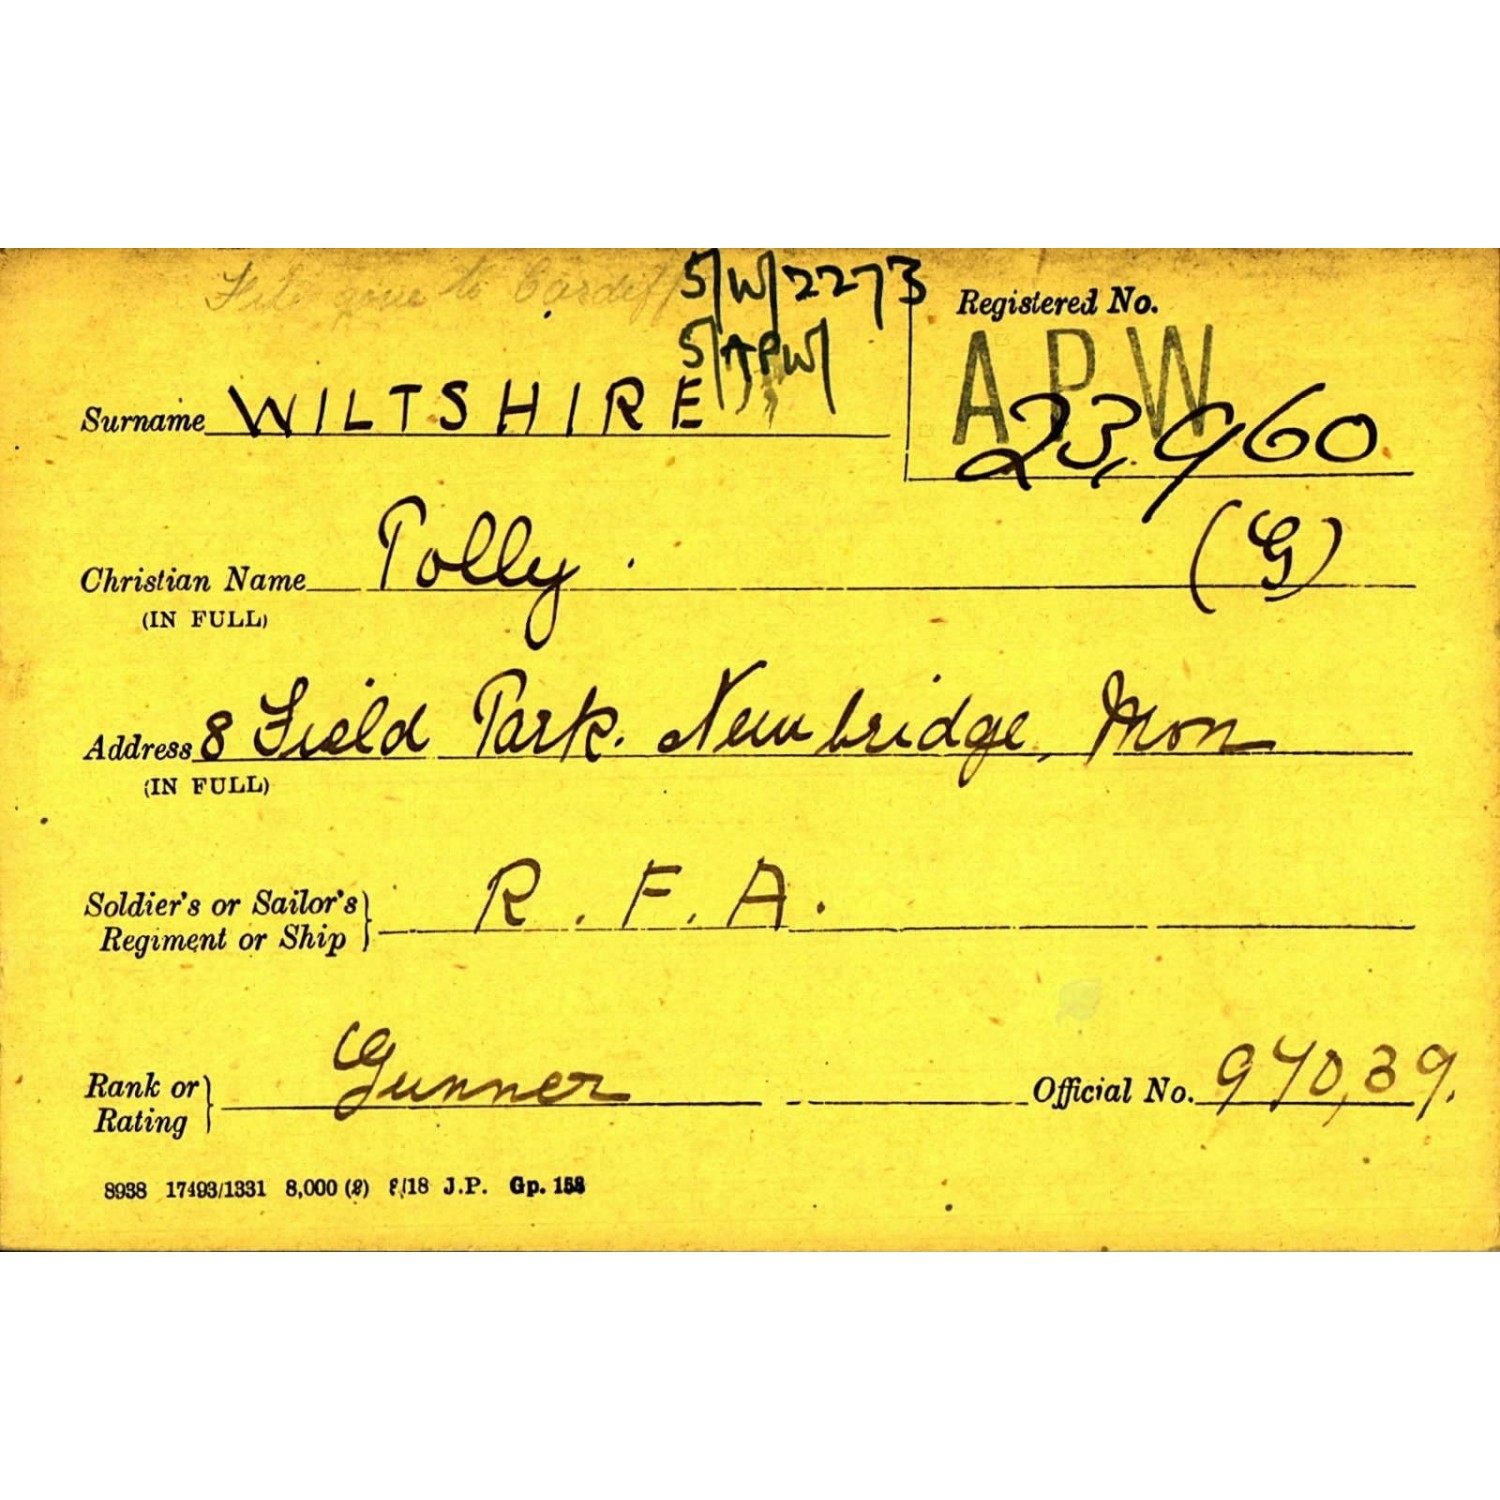 File gone to Cardiff
5/W/2273
5/APW/
Registered No.
APW
23,960
Surname WILTSHIRE
Christian Name Polly . (G)
(IN FULL)
Address 8 Field Park. Newbridge, Mon
(IN FULL)
Soldier's or Sailor's } R. F. A.
Regiment or Ship
Rank or } Gunner Official No. 970,39.
Rating
8938 17493/1331 8,000 (2) 8/18 J.P. Gp. 158